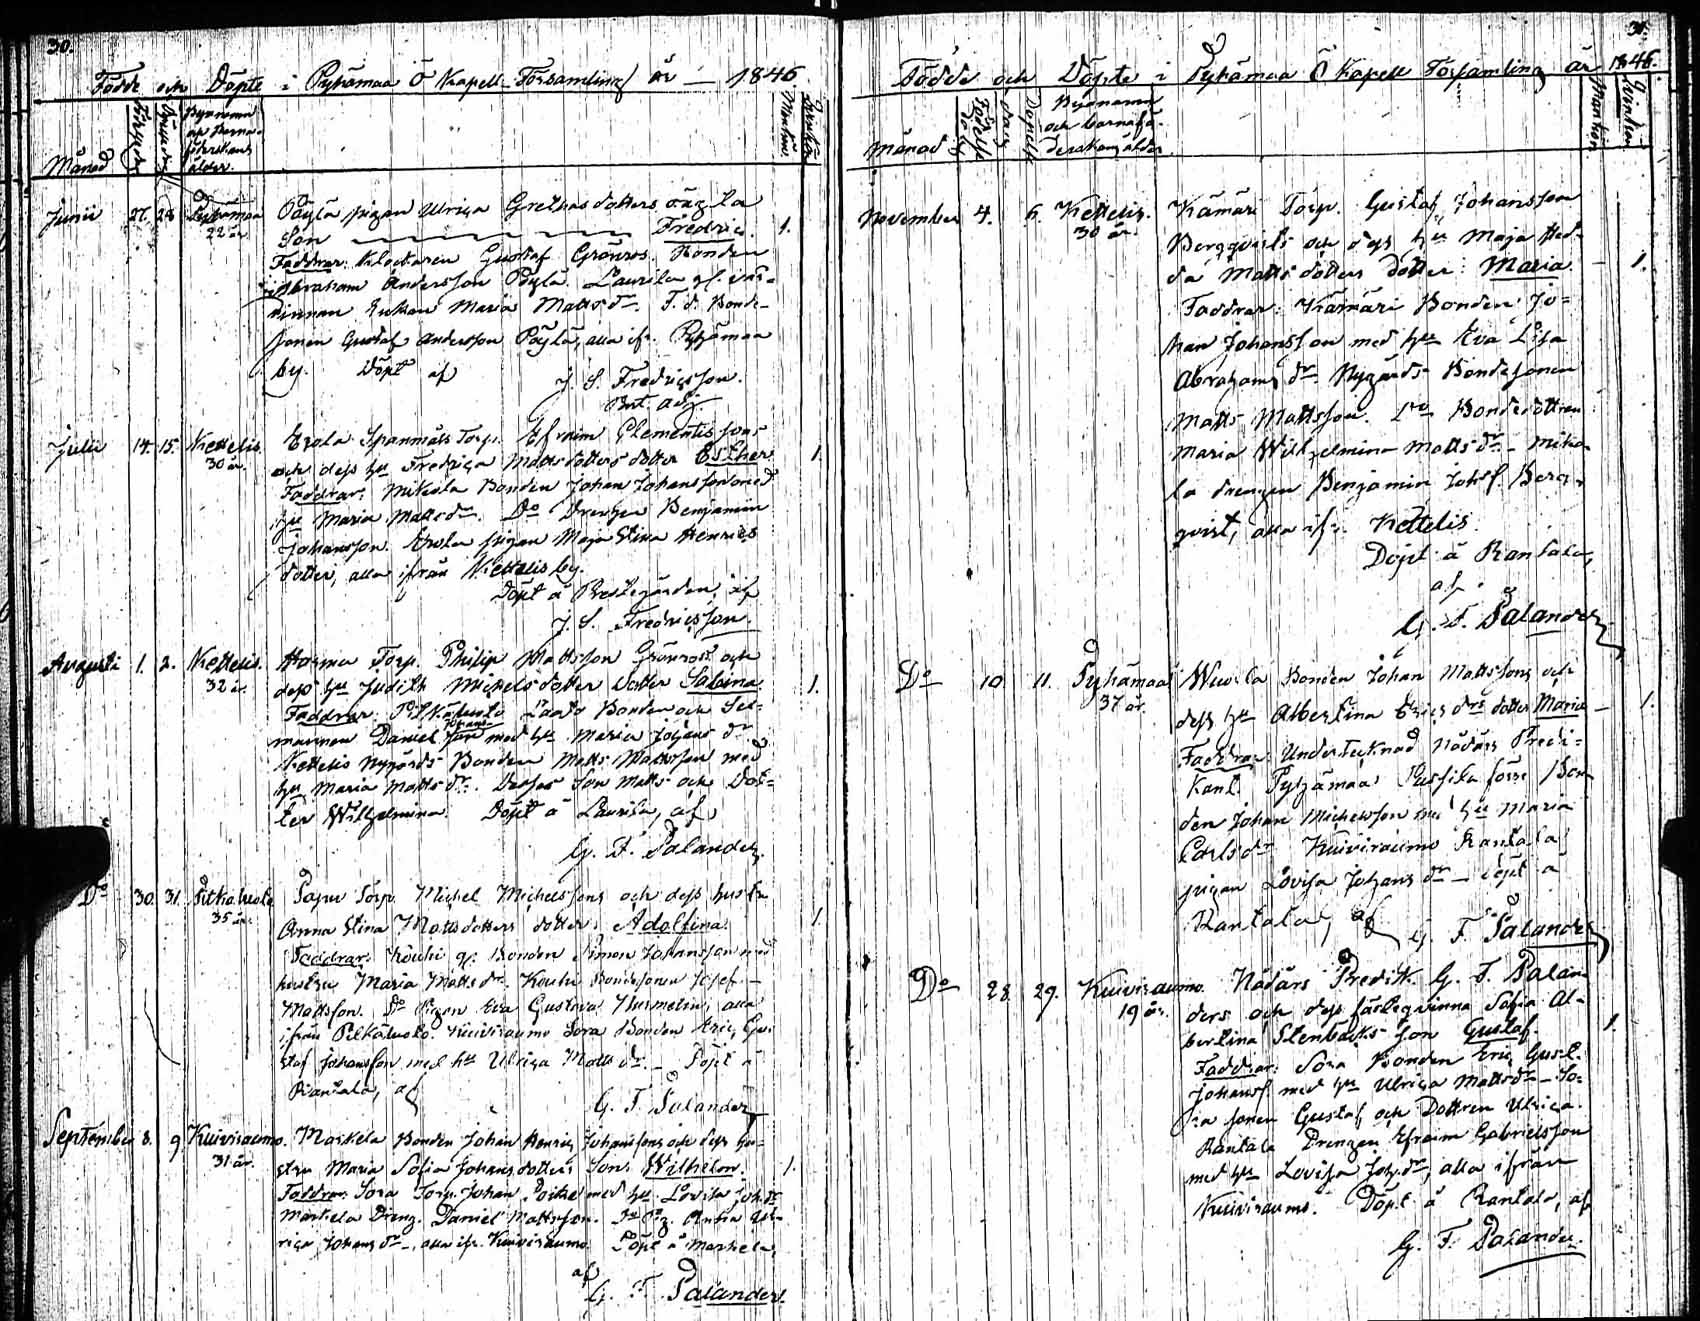 30.
Födde och Döpte i Pyhämaa Ö Kapell Församling år — 1846
Månad
Junii 27. 28 Pyhämaa 22 år. Päylä pigan Ulrica Grethas dotters oägta
Son Fredric. 1.
Faddrar: Klockaren Gustaf Grönros. Bonden
Abraham Andersson Päylä. Laurila gl. vär-
dinnan Enkan Maria Matts dr. F. d. Bonde-
sonen Gustaf Andersson Päylä, alla ifr. Pyhämaa
by. Döpt af
J. S. Fredricsson.
Julii 14. 15. Kettelis 30 år. Erola Spanmåls Torp. Efraim Clementssons
och dess hu Fredrica Mattsdotters dotter Esther 1.
Faddrar: Mikola Bonden Johan Johansson med
hu Maria Matts dr. Do Drengen Benjamin
Johansson. Erola pigan Maja Stina Henrics
dotter, alla ifrån Kettelis by.
Döpt å Prestegården, af
J. S. Fredricsson.
Augusti 1. 2. Kettelis. 32 år. Harma Torp. Philip Mattsson Grönroos och
dess hu Judith Michelsdotter dotter Sabina. 1.
Faddrar: Laato Bonden och
Daniel Johansson med hu Maria Johans dr
Kettelis Nygårds Bonden Matts Mattsson med
hu Maria Matts dr. Desses Son Matts och Dot-
ter Wilhelmina. Döpt å Laurila, af
G. F. Palander.
Do 30. 31. Pitkäluoto 35 år. Torp. Michel Michelssons och dess hustru
Anna Stina Mattsdotters dotter: Adolfina. 1.
Faddrar: Kouhi gl. Bonden Simon Johansson med
hustru Maria Matts dr. Kouhi Bondesonen Josef
Mattsson. Do Pigan Eva Gustava Nurmelin, alla
ifrån Pitkäluoto. Kuivisraumo Sora Bonden Eric Gu-
staf Johansson med hu Ulrica Matts dr. — Döpt å
Rantala, af
G. F. Palander
September 8. 9. Kuivisraumo. 31 år. Markela Bonden Johan Henric Johanssons och dess hu-
stru Maria Sofia Johans dotters Son: Wilhelm. 1.
Faddrar: Sora Torp. Johan med hu Lovisa Joh. dr
Markela Dreng. Daniel Mattsson. Do Pig. Anna Ul-
rica Johans dr —, alla ifr. Kuivisraumo. Döpt å Markela,
af
G. F. Palander.
31.
Födde och Döpte i Pyhämaa Ö Kapell Församling år 1846.
Månad
November 4. 6. Kettelis. 30 år. Kämäri Torp. Gustaf Johansson
Bergqvists och dess hu Maja Hed-
da Mattsdotters dotter: Maria — 1.
Faddrar: Kämäri Bonden Jo-
han Johansson med hu Eva Lisa
Abrahams dr. Nygårds Bondesonen
Matts Mattsson. Do Bondedottren
Maria Wilhelmina Matts dr. — Miko-
la drengen Benjamin Johsf. Berg-
qvist, alla ifr. Kettelis.
Döpt å Rantala,
af
G. F. Palander
Do 10 11. Pyhämaa 37 år. Bonden Johan Mattssons och
dess hu Albertina Erics drs dotter Maria — 1.
Faddrar: Undertecknad Nådårs Predi-
kant. Pyhämaa förre Bon-
den Johan Michelsson med hu Maria
Carls dr. Kuivisraumo Rantala
pigan Lovisa Johans dr — Döpt å
Rantala, af G. F. Palander
Do 28. 29. Kuivisraumo. 19 år. Nådårs Predik. G. F. Palan-
ders och dess fästeqvinna Sofia Al-
bertina Stenbäcks son Gustaf. 1.
Faddrar: Sora Bonden Eric Gust.
Johansf. med hu Ulrica Matts dr — So-
ra sonen Gustaf och Dottren Ulrica.
Rantala Drengen Efraim Gabrielsson
med hu Lovisa Joh. dr, alla ifrån
Kuivisraumo. Döpt å Rantala, af
G. F. Palander.